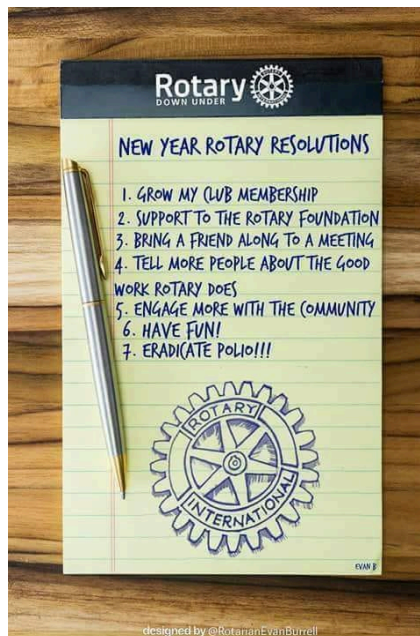 Rotary
DOWN UNDER
NEW YEAR ROTARY RESOLUTIONS
1. GROW MY CLUB MEMBERSHIP
2. SUPPORT TO THE ROTARY FOUNDATION
3. BRING A FRIEND ALONG TO A MEETING
4. TELL MORE PEOPLE ABOUT THE GOOD
WORK ROTARY DOES
5. ENGAGE MORE WITH THE COMMUNITY
6. HAVE FUN!
7. ERADICATE POLIO!!!
ROTARY
INTERNATIONAL
EVAN B
designed by @RotarianEvanBurrell